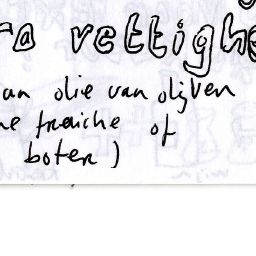 ra vettighe
an olie van olijven
me fraiche of
boter)